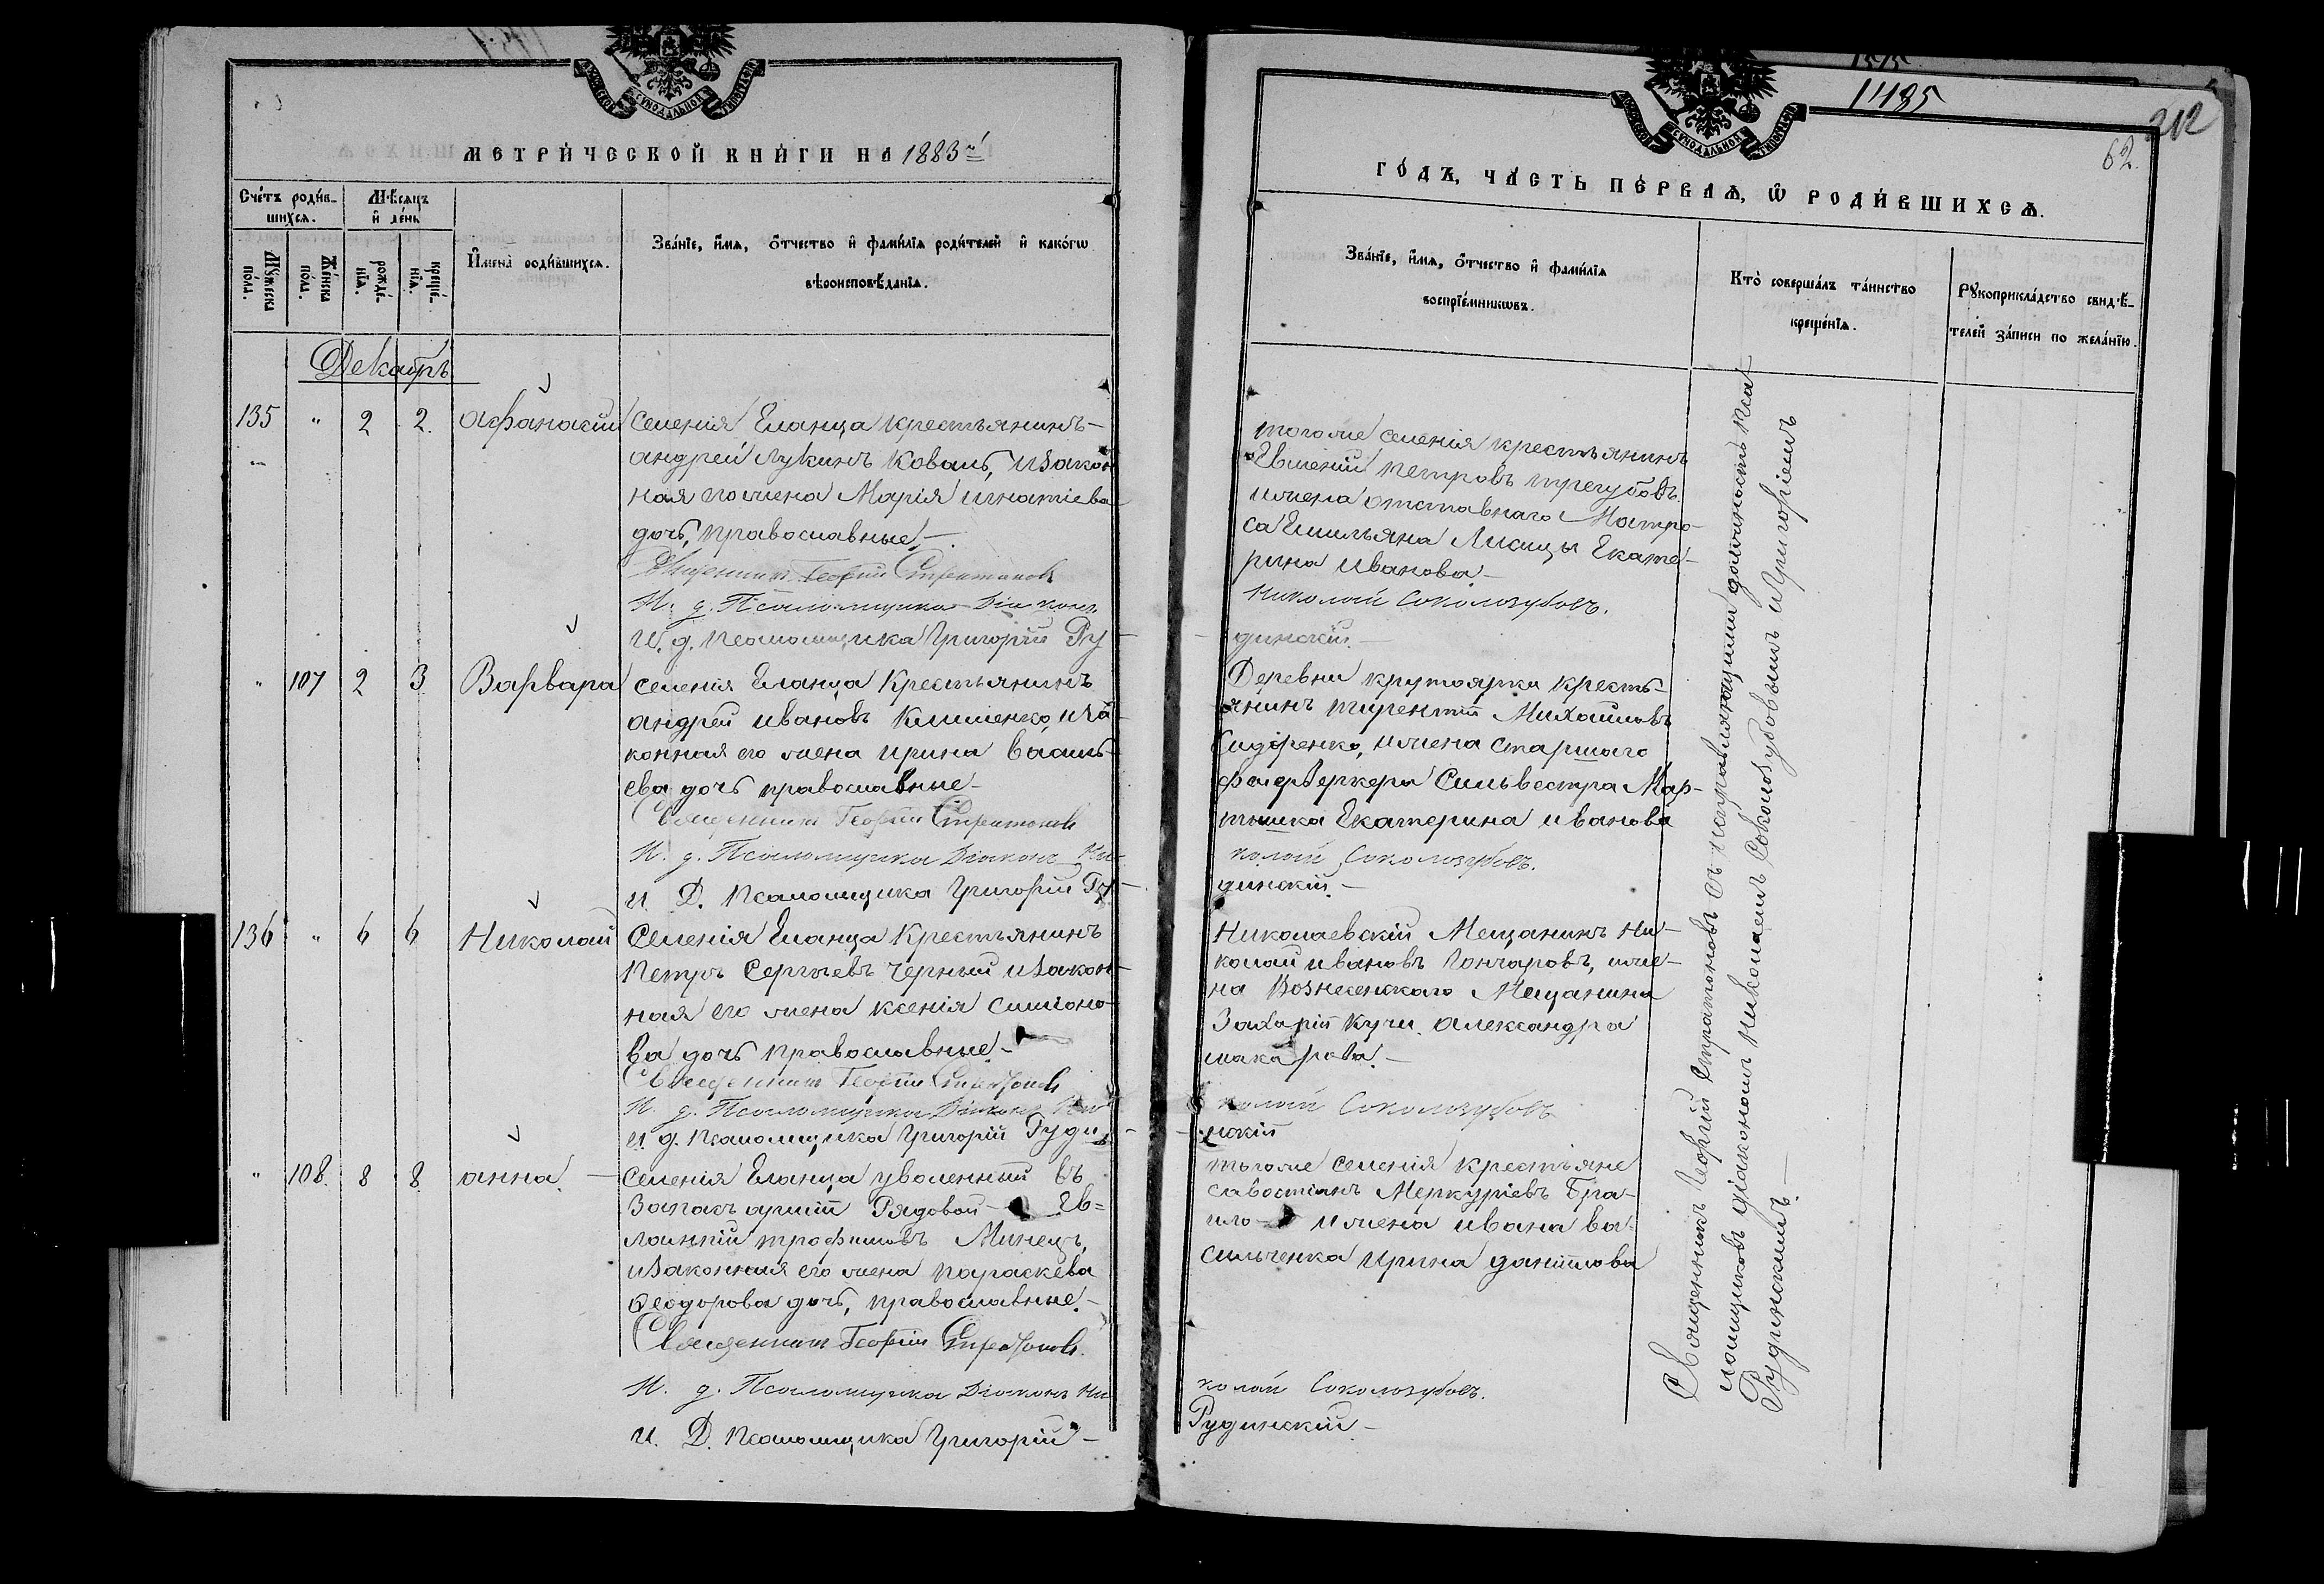 МЕТРИЧЕСКОЙ КНИГИ НА 1883 й
Счетъ родив-
шихся.
Мѣсяцъ
и день
Мужеска
полъ.
Женска
полъ.
рожде-
нія.
креще-
нія.
Имена родившихся.
Званіе, имя, отчество и фамилія родителей и какого
вѣроисповѣданія.
Декабрь
135 " 2 2. Афанасій Селенія Еланца крестьянинъ
андрей Лукинъ Коваль, изакон
ная его жена Марія игнатіева
дочь, православные.
Священникъ Георгій Стратоновъ
И. д. Псаломщика Діаконъ
И. д. псаломщика Григорій Ру-
" 107 2 3 Варвара селенія Еланца Крестьянинъ
андрей ивановъ Клименко, иза
конная его жена ирина василь
ева дочь православные
Священникъ Георгій Стратоновъ
И. д. Псаломщика Діаконъ Ни-
и. Д. псаломщика Григорій Ру-
136 " 6 6 Николай Селенія Еланца Крестьянинъ
Петръ Сергѣевъ Черный изакон-
ная его жена ксенія симионо-
ва дочь православные
Священникъ Георгій Стратоновъ
И. д. Псаломщика Діаконъ Ни
и д. псаломщика Григорій Руди
" 108. 8 8 анна. Селенія Еланца уволенный въ
Запасъ арміи Рядовой Ев=
лампій трофимовъ Минецъ,
изаконная его жена параскева
Ѳеодорова дочь, православные.
Священникъ Георгій Стратоновъ.
И. д. Псаломщика Діаконъ Ни
и. Д. псаломщика Григорій
1485
212
62.
ГОДЪ, ЧАСТЬ ПЕРВАЯ, Ѡ РОДИВШИХСЯ.
Званіе, имя, отчество и фамилія
воспріемниковъ.
Кто совершалъ таинство
крещенія.
Рукоприкладство свидѣ-
телей записи по желанію.
тогоже селенія крестьянинъ
Евгеній петровъ трегубовъ.
ижена отставнаго Матро-
са Емильяна Лисицы Екате-
рина иванова.
Николай Соколозубовъ.
динскій.
Деревни крутоярки кресть-
янинъ тирентій Михайловъ
Сидоренко, ижена старшаго
фаерверкера Сильвестра Мар-
тышка Екатерина иванова
колай Соколозубовъ.
динскій.
Николаевскій Мещанинъ Ни-
колай ивановъ Гончаровъ, иже-
на Вознесенскаго Мещанина
Захарія Кучи. александра
макарова.
колай Соколозубовъ
нскій
тогоже селенія крестьяне
савостіанъ Меркуріевъ
ижена ивана ва-
сильченка ирина даніилова
колай Соколозубовъ.
Рудинскій
Священникъ Георгій Стратоновъ съ исправляющими должность пса
ломщиковъ діакономъ николаемъ Соколозубовымъ и Григоріемъ
Рудинскимъ.